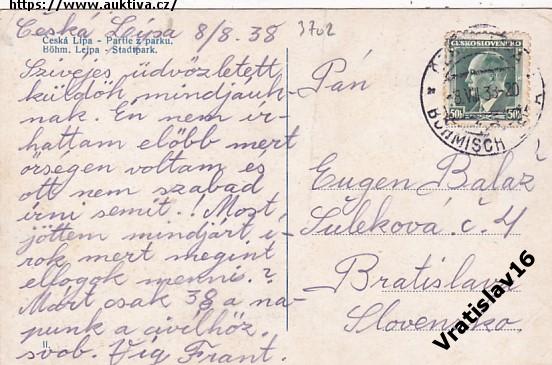 https://www.auktiva.cz/
Česká Lípa 8/8.38
3702
Česká Lípa - Partie z parku.
Böhm. Leipa - Stadtpark.
Szivéjes üdvözletett
küldöh mindjauh-
nak. Én nem ír-
hattam előbb mert
őrségen voltam és
ott nem szabad
írni semit.! Most
jöttem mindjárt í-
rok mert megint
ellogok menni.?
Márt csak 38 a na-
punk a civilhöz.
svob. Víg Frant.
II.
ČESKOSLOVENSKO
50h
BÖHMISCH
Pán
Eugen Balaž
Šulekova č. 4
Bratislava
Slovensko.
Vratislav16